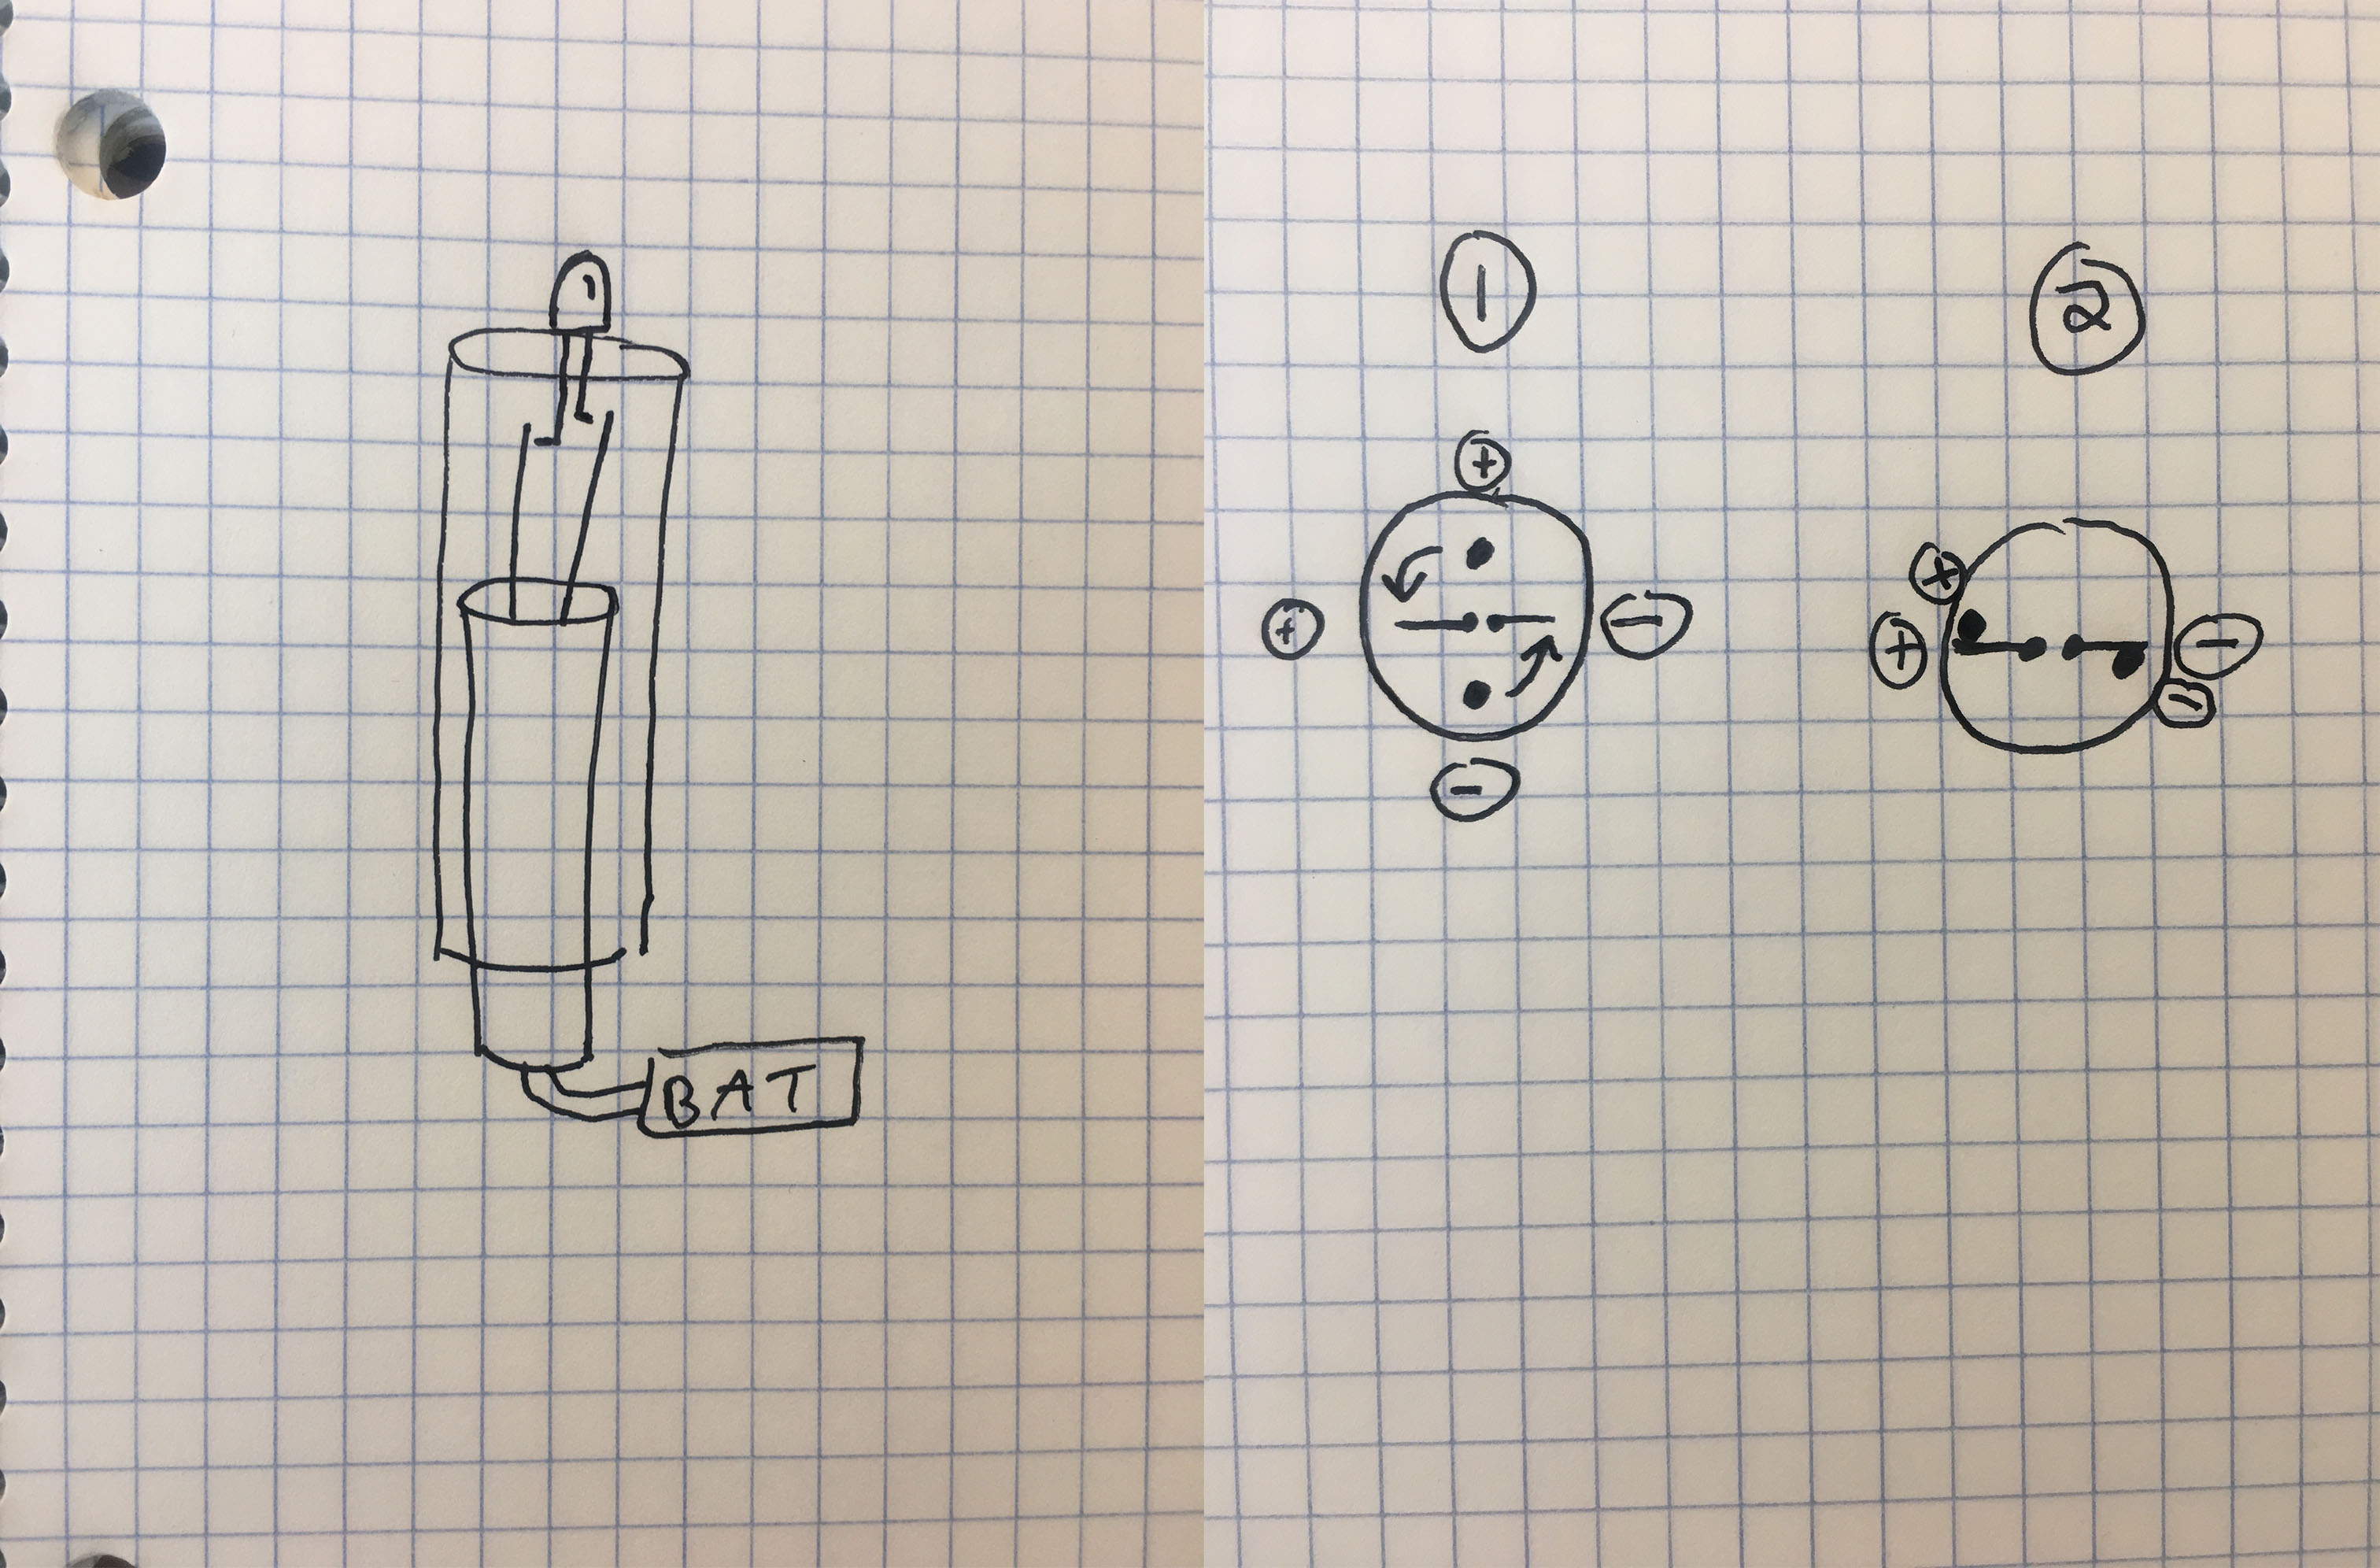 BAT
1
2
+
+
-
-
+
+
-
-